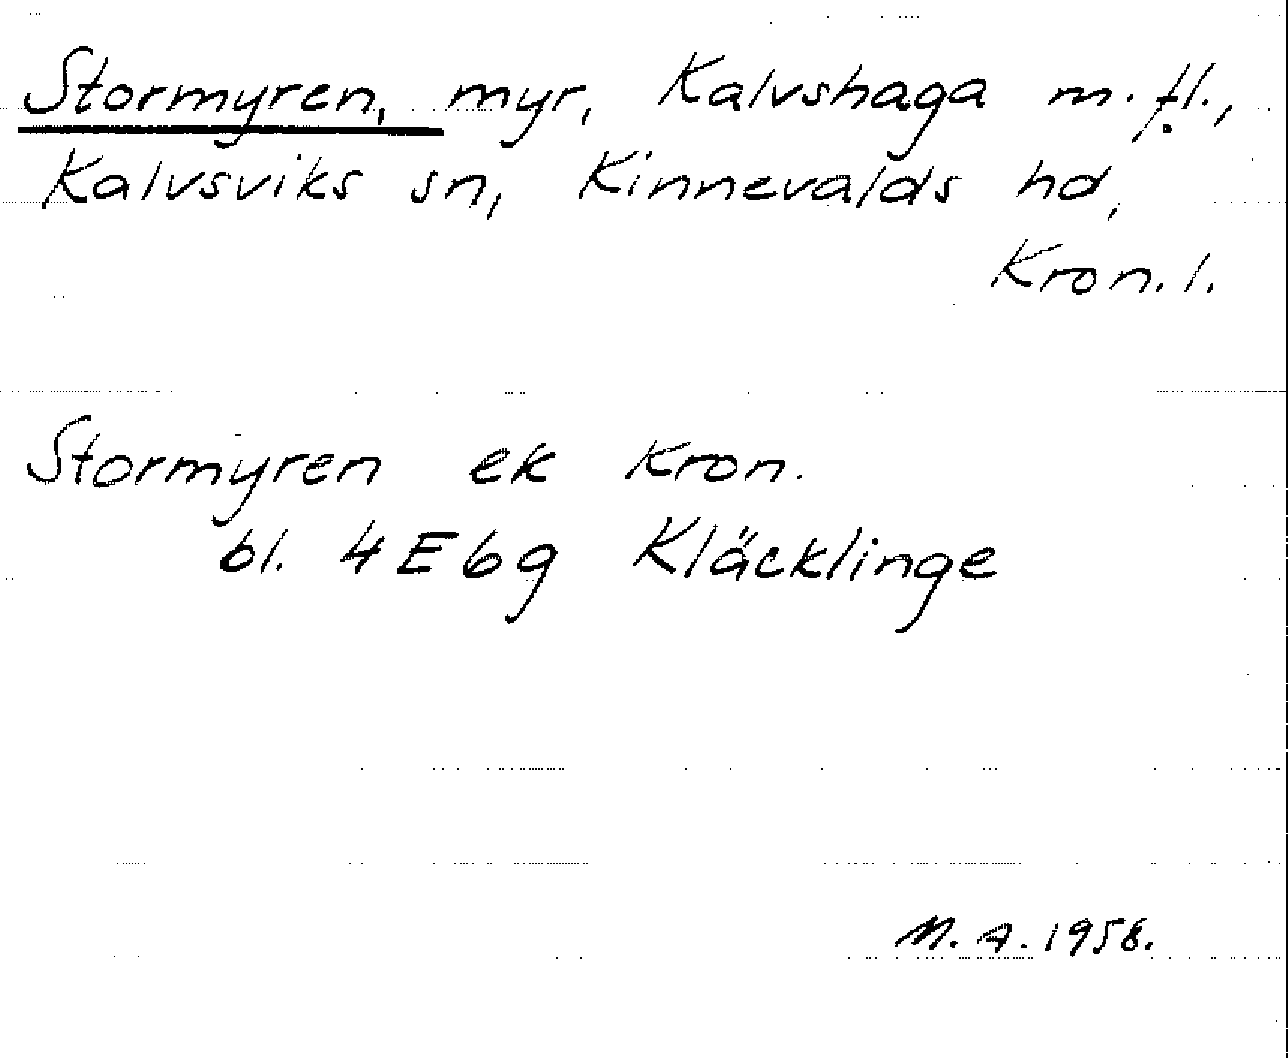 Stormyren, myr, Kalvshaga m. fl.,
Kalvsviks sn, Kinnevalds hd,
Kron. l.
Stormyren ek Kron.
bl. 4E6g Kläcklinge
M. A. 1958.